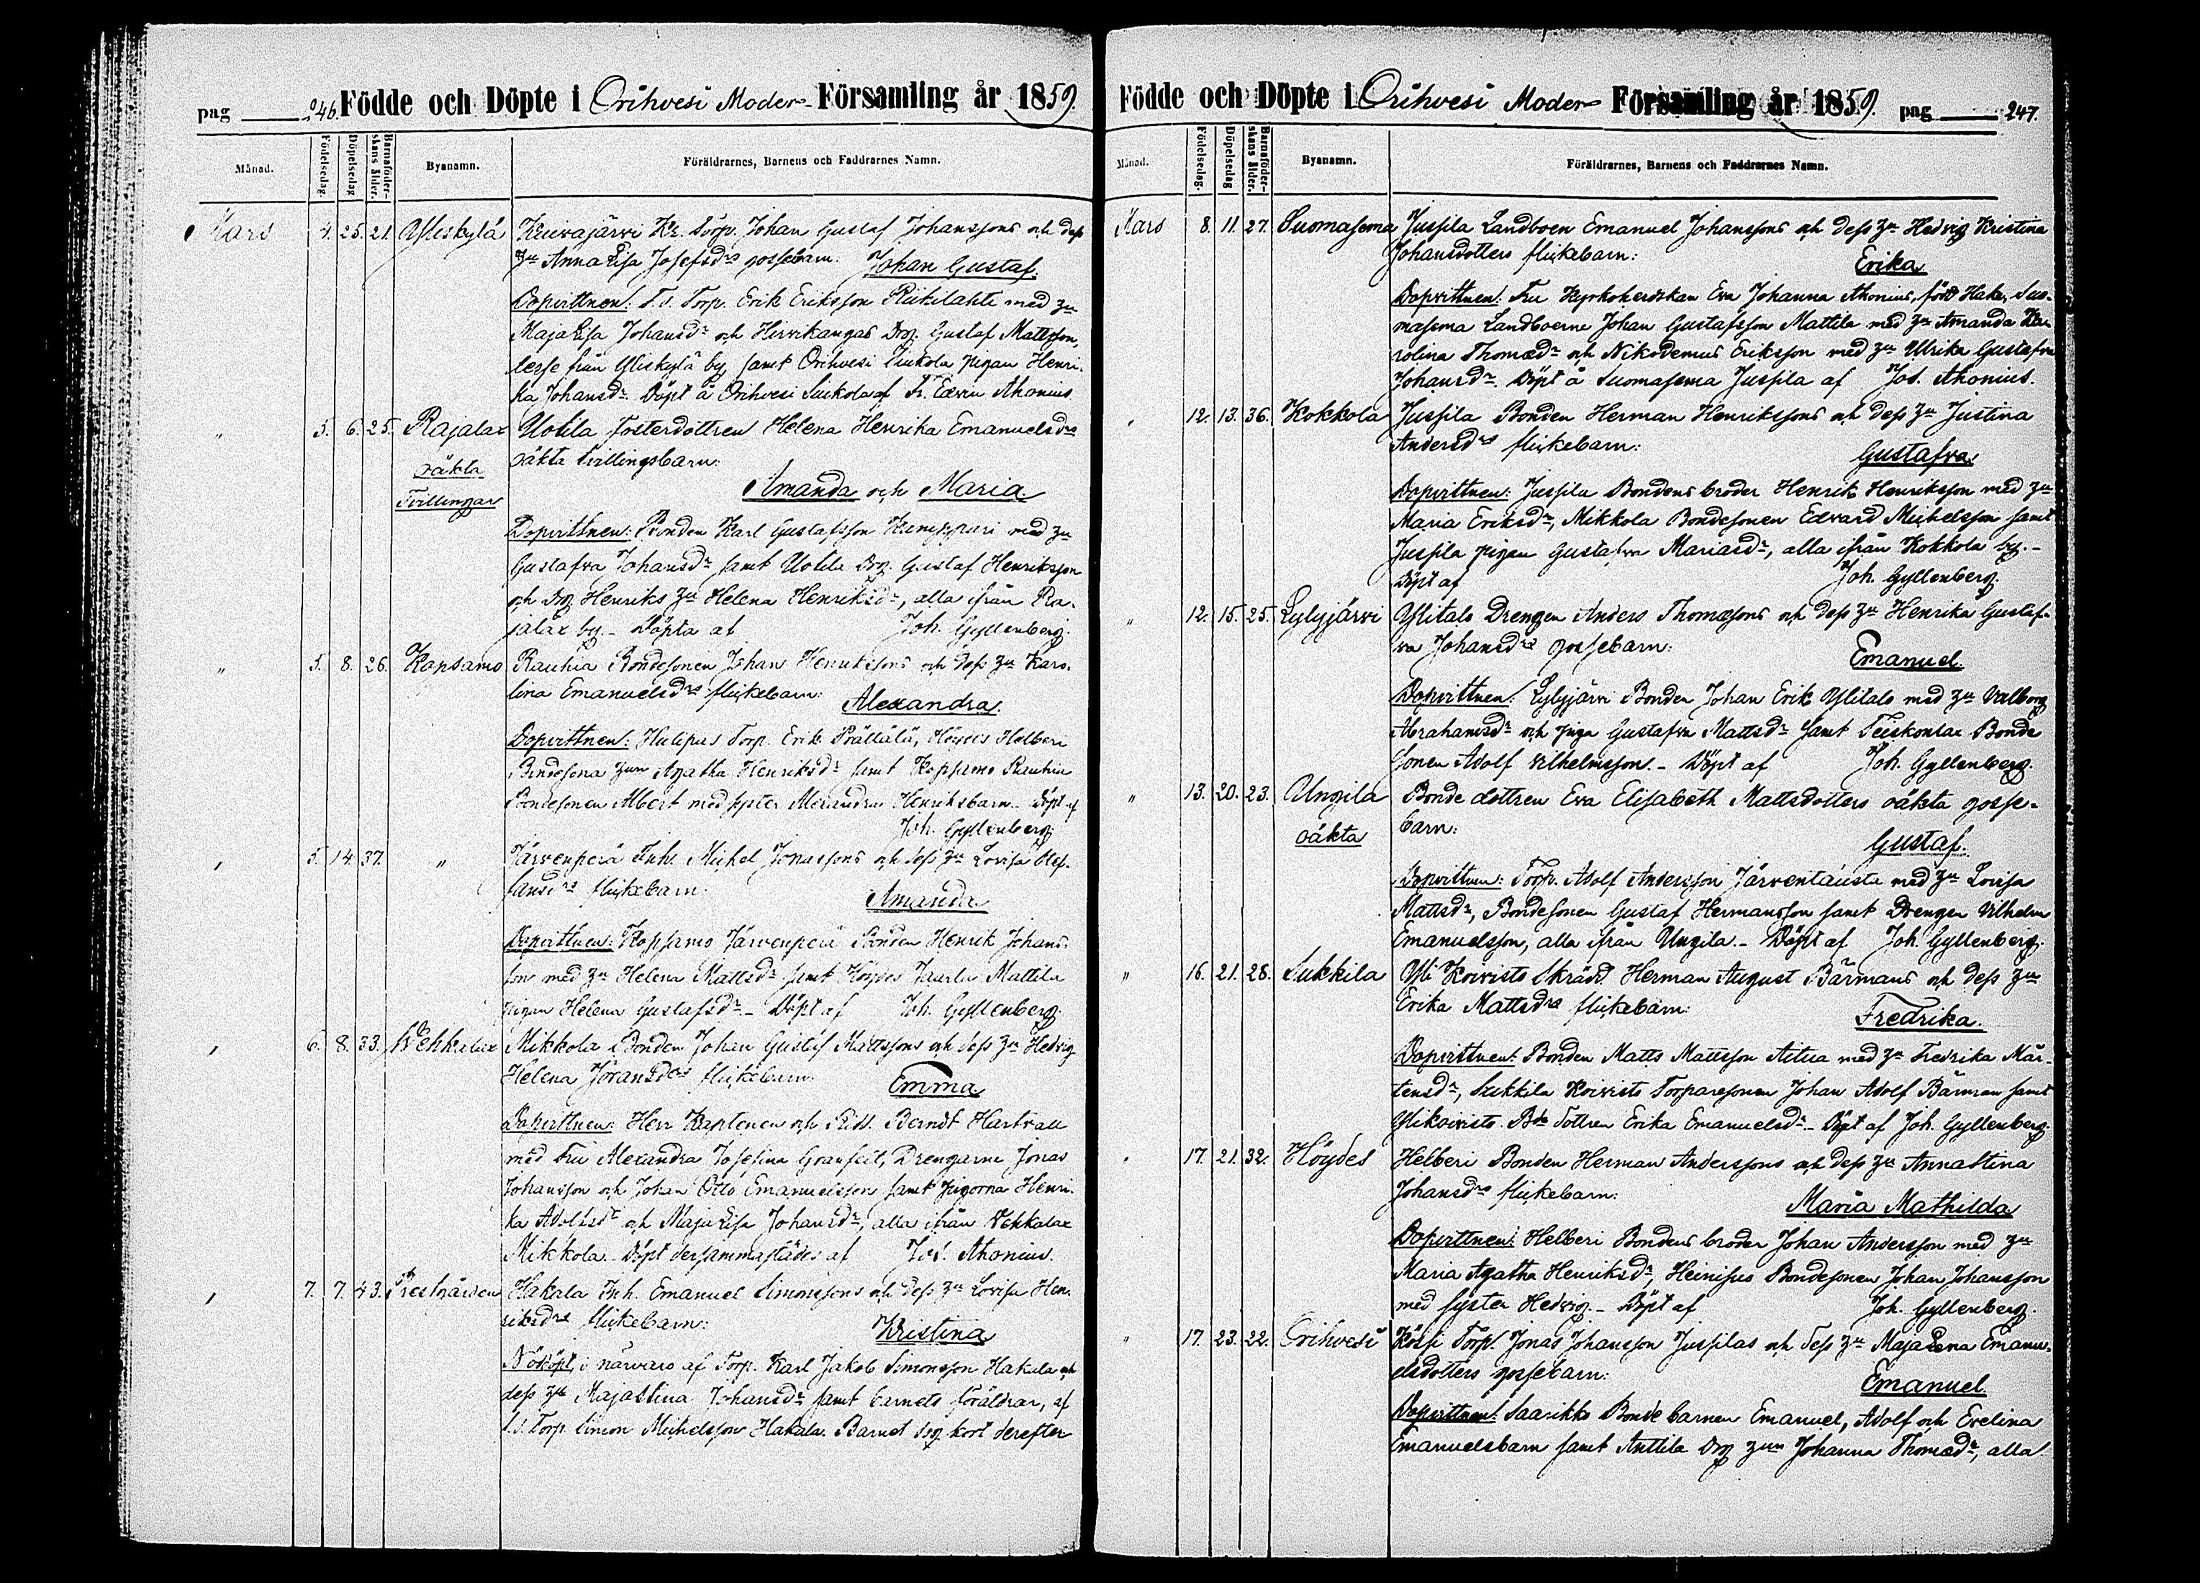 pag 246. Födde och Döpte i Orihvesi Moder- Församling år 1859.
Månad. Födelsedag. Döpelsedag Barnaföderskans ålder. Byanamn. Föräldrarnes, Barnens och Faddrarnes Namn.
Mars 4. 25. 21. Yliskylä Kuivajärvi Kr. Torp. Johan Gustaf Johanssons och dess
hu Anna Lisa Josefsdrs gossebarn. Johan Gustaf.
Dopvittnen: F.d. Torp. Erik Eriksson Riikilahti med hu
Maja Lisa Johansdr och Hirvikangas Drg. Gustaf Mattsson,
desse från Yliskylä by samt Orihvesi Liukola pigan Henri-
ka Johansdr. Döpt å Orihvesi af Edvin Ahonius
" 5. 6. 25. Rajalax Uotila fosterdottren Helena Henrika Emanuelsdrs
oäkta oäkta tvillingsbarn:
Tvillingar Amanda och Maria.
Dopvittnen: Bonden Karl Gustafsson Kumppuri med hu
Gustafva Johansdr samt Uotila Drg. Gustaf Henriksson
och Drg Henriks hu Helena Henriksdr, alla ifrån Ra-
jalax by. Döpta af Joh. Gyllenberg.
" 5. 8. 26. Kopsamo Rauhia Bondesonen Johan Henrikssons och dess hu Karo-
lina Emanuelsdrs flickebarn: Alexandra.
Dopvittnen: Torp. Erik Prättälä, Höydes Helberi
Bondesona hun Agatha Henriksdr samt Kopsamo Rauhia
Bondesonen Albert med syster Alexandra Henriksbarn. Döpt af
Joh. Gyllenberg.
" 5. 14. 37. " Järvenperä Inh. Michel Jonassons och dess hu Lovisa
flickebarn: Amanda
Dopvittnen: Kopsamo Järvenperä Bonden Henrik Johans-
son med hu Helena Mattsdr samt Höydes Mattila
pigan Helena Gustafsdr. Döpt af Joh. Gyllenberg.
" 6. 8. 33. Wehkalax Mikkola Bonden Johan Gustaf Mattssons och dess hu Hedvig
Helena Göransdrs flickebarn: Emma
Dopvittnen: Herr Kaptenen och Ridd. Berndt Hartvall
med Fru Alexandra Josefina Granfelt, Drengarna Jonas
Johansson och Johan Otto Emanuelsson samt pigorna Henri-
ka Adolfsdr och Maja Lisa Johansdr, alla ifrån Vehkalax
Mikkola. Döpt dersammastädes af Jos. Ahonius.
" 7. 7. 43. Prestgården Hakala Inh. Emanuel Simonssons och dess hu Lovisa Hen-
riksdrs flickebarn: Kristina
Nöddöpt, i närvaro af Torp. Karl Jakob Simonsson Hakala och
dess hu Maja Stina Johansdr samt barnets föräldrar, af
f.d. Torp. Simon Michelsson Hakala. Barnet dog kort derefter
Födde och Döpte i Orihvesi Moder- Församling år 1859. pag 247.
Månad. Födelsedag. Döpelsedag Barnaföderskans ålder. Byanamn. Föräldrarnes, Barnens och Faddrarnes Namn.
Mars 8. 11. 27. Suomasema Jussila Landboen Emanuel Johanssons och dess hu Hedvig Kristina
Johansdotters flickebarn: Erika
Dopvittnen: Fru Kyrkoherdskan Eva Johanna Ahonius, född Suo-
masema Landboerne Johan Gustafsson Mattila med hu Amanda Ka-
rolina Thomædr och Nikodemus Eriksson med hu Ulrika Gustafva
Johansdr. Döpt å Suomasema Jussila af Jos. Ahonius.
" 12. 13. 36. Kokkola Jussila Bonden Herman Henrikssons och dess hu Justina
Andersdrs flickebarn: Gustafva
Dopvittnen: Jussila Bondens broder Henrik Henriksson med hu
Maria Eriksdr, Mikkola Bondesonen Edvard Michelsson samt
Jussila pigan Gustafva Mariasdr, alla ifrån Kokkola by.-
Döpt af Joh. Gyllenberg.
" 12. 15. 25. Lylyjärvi Ylitalo Drengen Anders Thomæssons och dess hu Henrika Gustaf-
va Johansdrs gossebarn: Emanuel.
Dopvittnen: Lylyjärvi Bonden Johan Erik Ylitalo med hu Valborg
Abrahamsdr och piga Gustafva Mattsdr samt Teiskontax Bonde
sonen Adolf Vilhelmsson. - Döpt af Joh. Gyllenberg.
" 13. 20. 23. Ungila Bonde dottren Eva Elisabeth Mattsdotters oäkta gosse-
oäkta barn: Gustaf.
Dopvittnen: Torp. Adolf Andersson Järventausta med hu Lovisa
Mattsdr, Bondesonen Gustaf Hermansson samt Drengen Vilhelm
Emanuelsson, alla ifrån Ungila. - Döpt af Joh. Gyllenberg.
" 16. 21. 28. Sukkila Yli Koivisto Skrädd. Herman August Bärmans och dess hu
Erika Mattsdrs flickebarn: Fredrika.
Dopvittnen: Bonden Matts Mattsson Aitua med hu Fredrika Mår-
tensdr, Sukkila Koivisto Torparesonen Johan Adolf Bärman samt
Ylikoivisto Bde dottren Erika Emanuelsdr. - Döpt af Joh. Gyllenberg.
" 17. 21. 32. Höydes Helberi Bonden Herman Anderssons och dess hu Anna Stina
Johansdrs flickebarn: Maria Mathilda
Dopvittnen: Helberi Bondens broder Johan Andersson med hu
Maria Agatha Henriksdr, Heinijus Bondesonen Johan Johansson
med syster Hedvig. - Döpt af Joh. Gyllenberg.
" 17. 23. 22. Orihvesi Torp. Jonas Johansson Jussilas och dess hu Maja Lena Emanu-
elsdotters gossebarn: Emanuel
Dopvittnen: Saarikko Bonde barnen Emanuel, Adolf och Evelina
Emanuelsbarn samt Anttila Drg hun Johanna Thomædr, alla